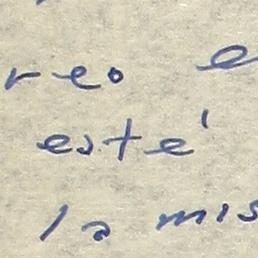 reo e
esté
la mis